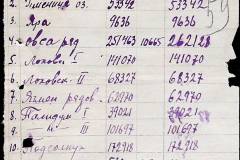 2. Пшениц оз. 53342 53342
3. Яра 9636 9636
4. овса ряд 251463 10665 262128
5. I 141070 141070
6. II 68327 68327
7. рядов. 62970 62970
8. I 39021 39021
9. —"— III 101697 101697
10. Подсолнух 172918 172918
59